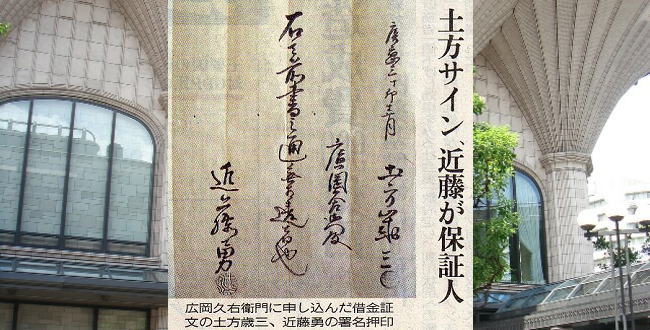 土方サイン、近藤が保証人
慶應三丁卯 月
土方歳三
廣岡 殿
右之前書之通無相違者也
近藤勇
広岡久右衛門に申し込んだ借金証
文の土方歳三、近藤勇の署名押印